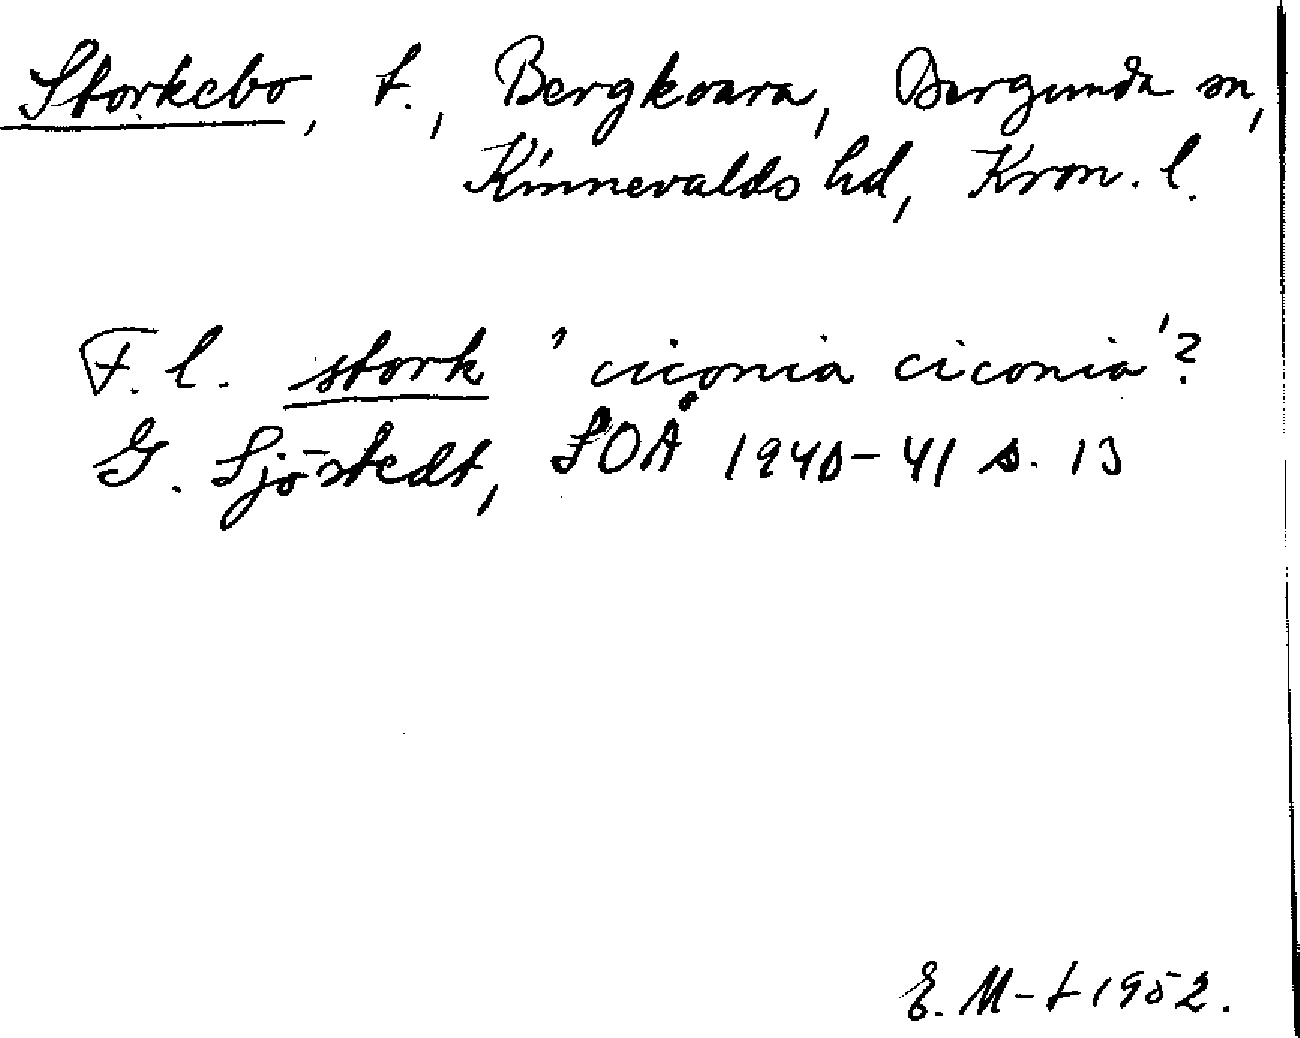 Storkebo, t., Bergkvara, Bergunda sn,
Kinnevalds hd, Kron. l.
F. l. stork 'ciconia ciconia'?
G. Sjöstedt, SOÅ 1940-41 s. 13
E. M-t 1952.